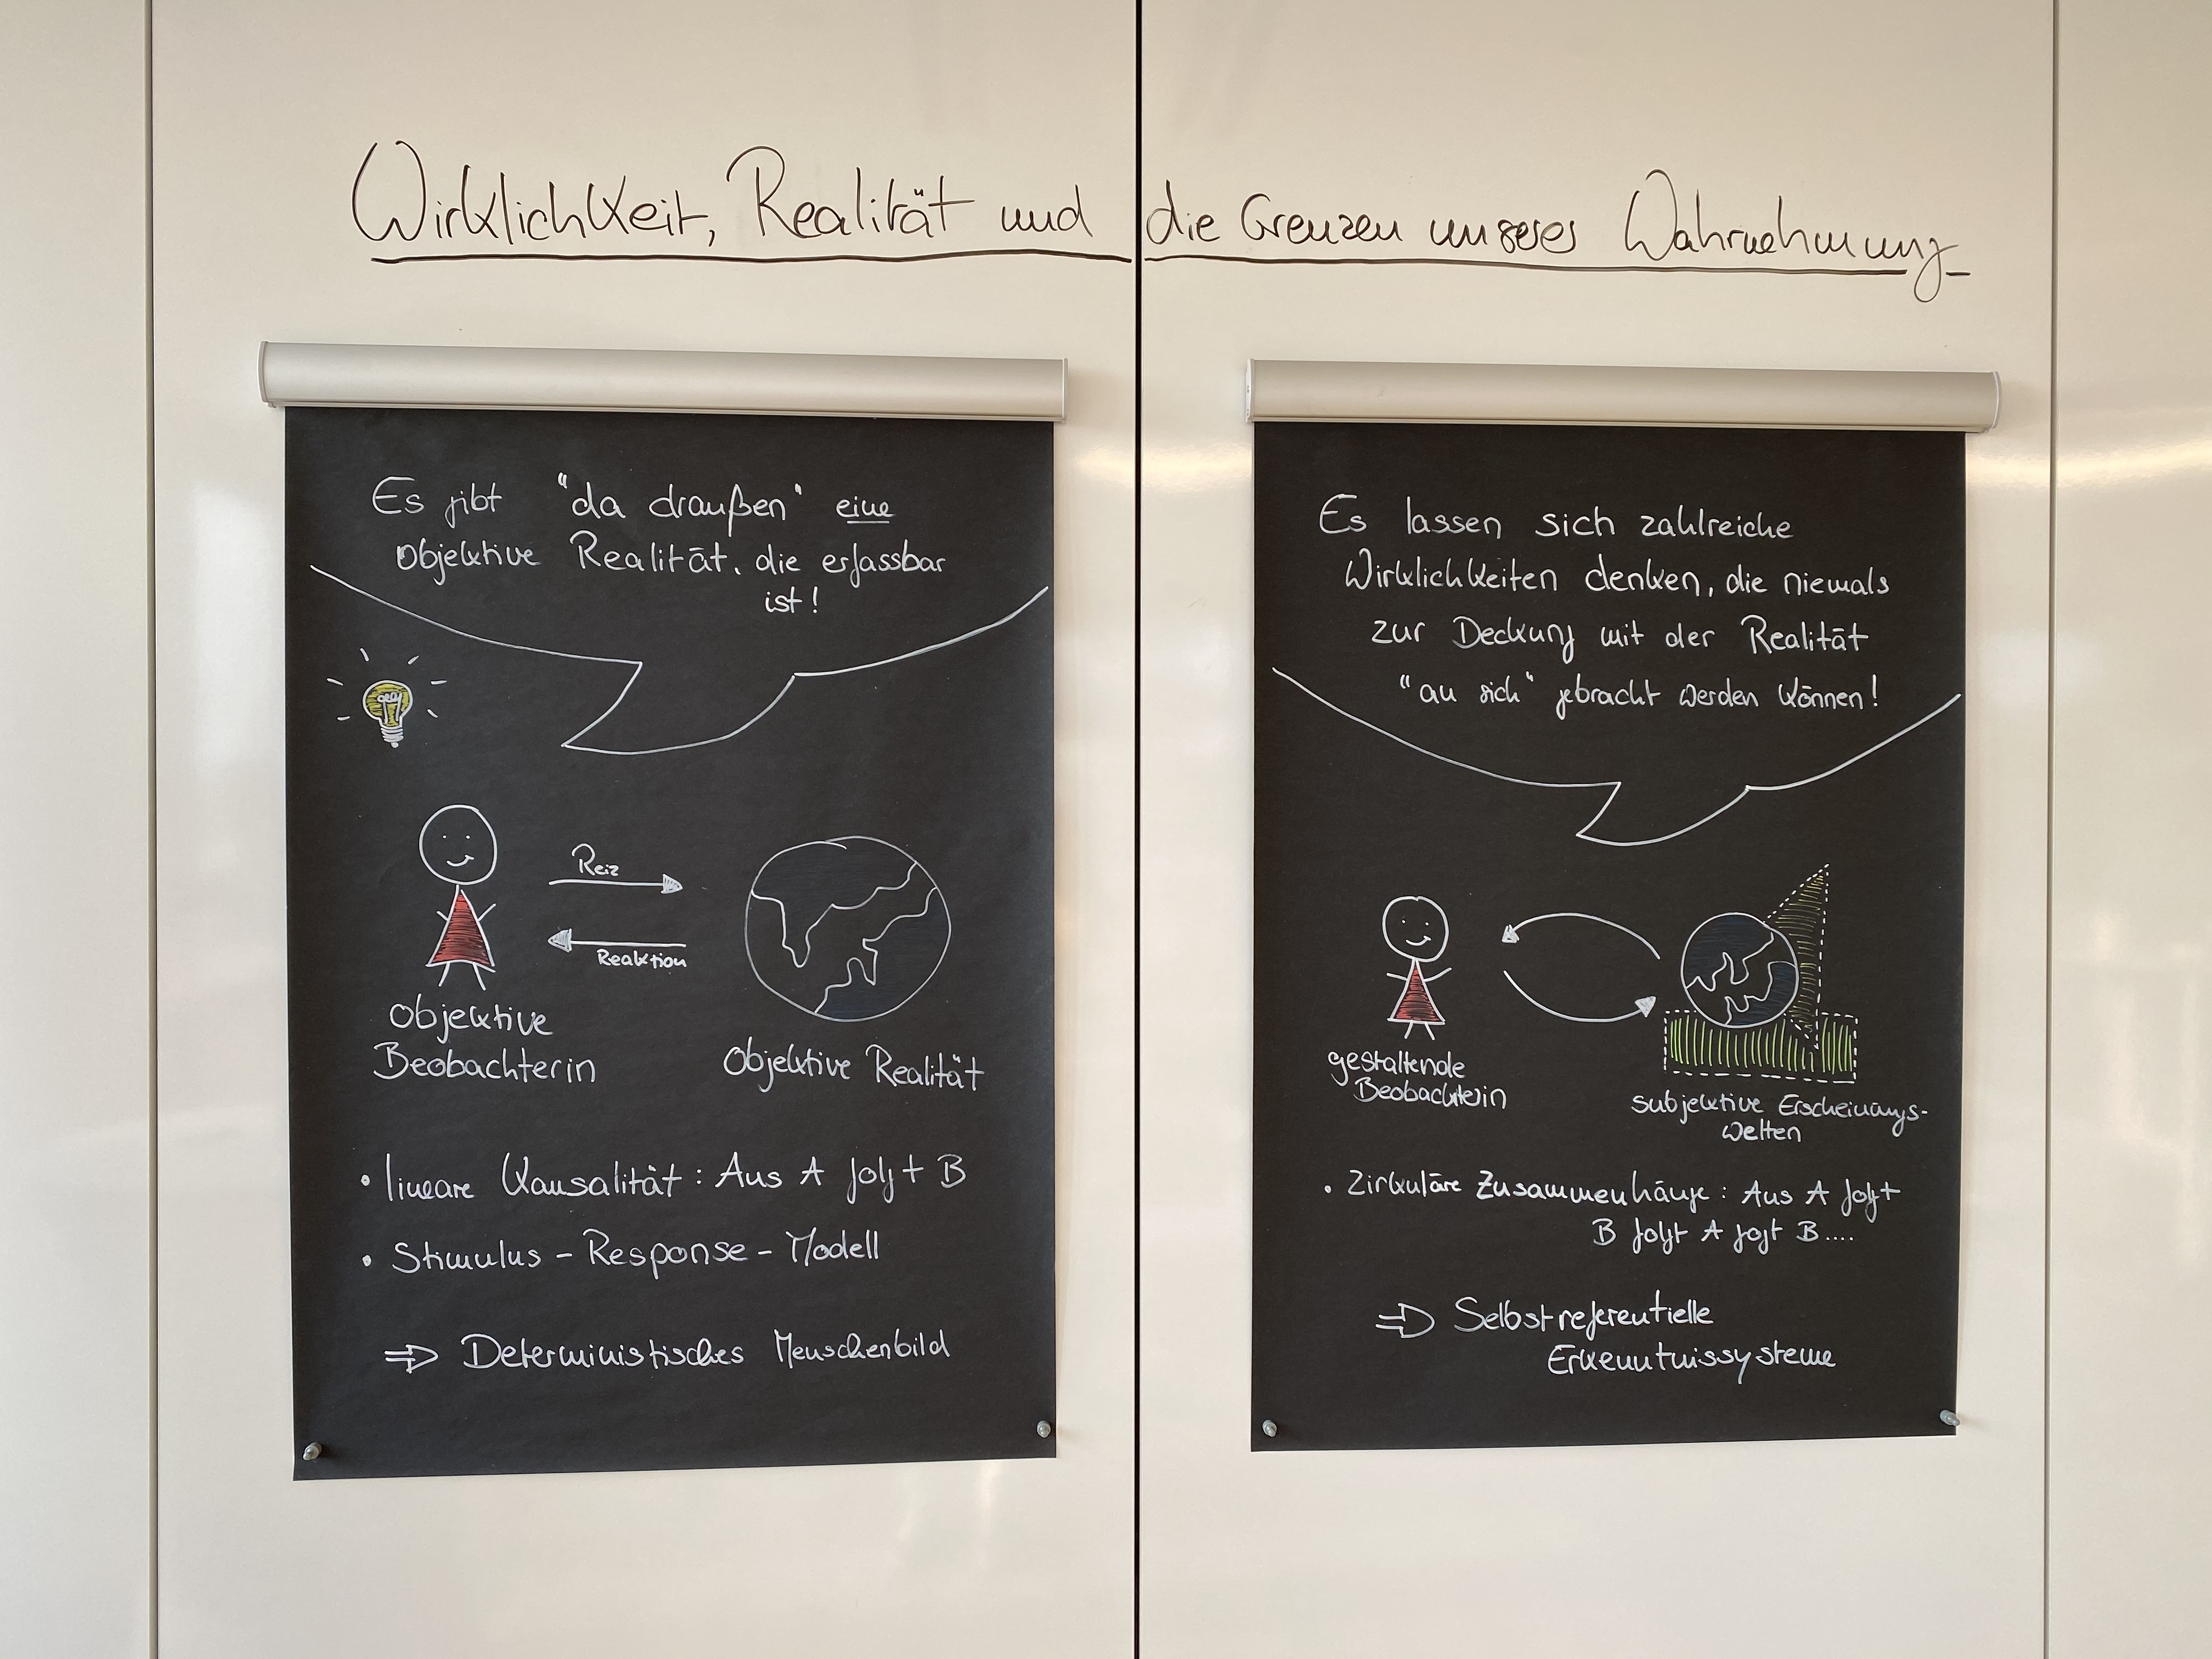 Wirklichkeit, Realität und die Grenzen unseres Wahrnehmung
Es gibt "da draußen" eine
objektive Realität, die erfassbar
ist!
Reiz
Reaktion
Objektive
Beobachterin
Objektive Realität
• lineare Kausalität: Aus A folgt B
• Stimulus - Response - Modell
⇒ Deterministisches Menschenbild
Es lassen sich zahlreiche
Wirklichkeiten denken, die niemals
zur Deckung mit der Realität
"an sich" gebracht werden können!
gestaltende
Beobachterin
subjektive Erscheinungs-
welten
• Zirkuläre Zusammenhänge: Aus A folgt
B folgt A fogt B....
⇒ Selbstreferentielle
Erkenntnissysteme